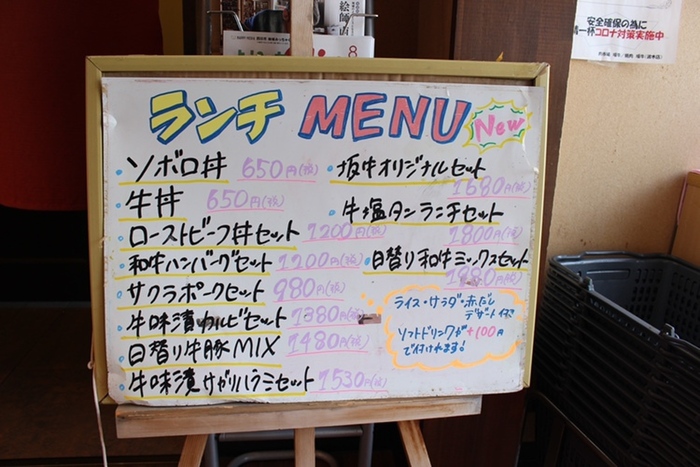 絵師
8
安全確保の為に
コロナ対策実施中
ランチ MENU New
・ソボロ丼 650円(税)
・牛丼 650円(税)
・ローストビーフ丼セット 1200円(税)
・和牛ハンバーグセット 1200円(税)
・サクラポークセット 980円(税)
・牛味漬カルビセット 1380円(税)
・日替り牛豚MIX 1480円(税)
・牛味漬サガリハラミセット 1530円(税)
・坂牛オリジナルセット
1680円(税)
・牛塩タンランチセット
1800円(税)
・日替り和牛ミックスセット
1980円(税)
ライス・サラダ・赤だし
デザート付
ソフトドリンクが+100円
で付けれます!